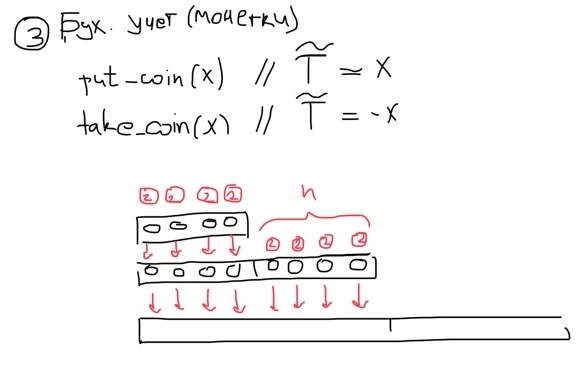 ③ Бух. учет (монетки)
put_coin(x) // T̃ = x
take_coin(x) // T̃ = -x
② ② ② ② n
② ② ② ②